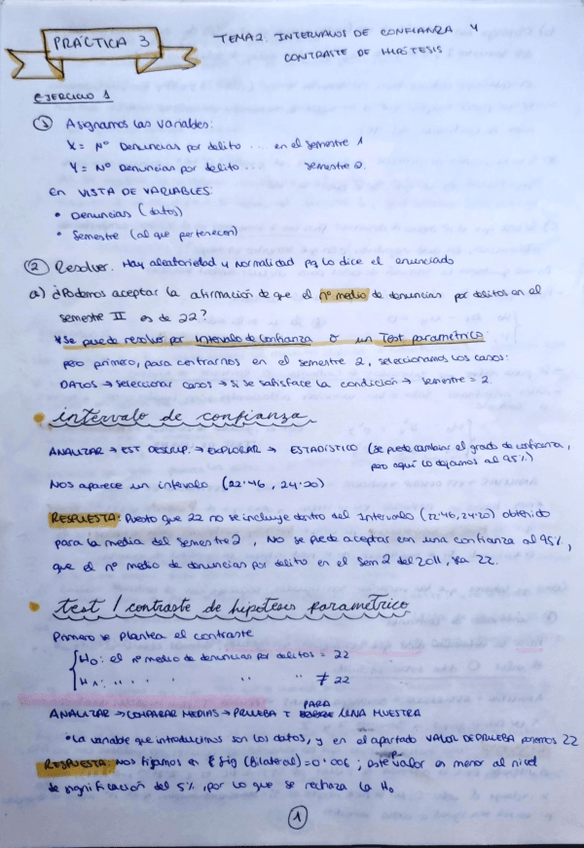 PRÁCTICA 3
TEMA 2. INTERVALOS DE CONFIANZA Y
CONTRASTE DE HIPÓTESIS
EJERCICIO 1
① Asignamos las variables:
X = Nº Denuncias por delito ... en el semestre 1
Y = Nº Denuncias por delito ... semestre 2.
EN VISTA DE VARIABLES:
• Denuncias (datos)
• Semestre (al que pertenecen)
② Resolver. Hay aleatoriedad y normalidad pq lo dice el enunciado
a) ¿Podemos aceptar la afirmación de que el nº medio de denuncias por delitos en el
semestre II es de 22?
*Se puede resolver por intervalo de confianza o un Test paramétrico:
pero primero, para centrarnos en el semestre 2, seleccionamos los casos:
DATOS → seleccionar casos → si se satisface la condición → semestre = 2.
intervalo de confianza
ANALIZAR → EST DESCRIP. → EXPLORAR → ESTADÍSTICO (se puede cambiar el grado de confianza,
pero aquí lo dejamos al 95%)
Nos aparece un intervalo (22'46, 24'20)
RESPUESTA: Puesto que 22 no se incluye dentro del intervalo (22'46, 24'20) obtenido
para la media del semestre 2, NO se puede aceptar con una confianza al 95%,
que el nº medio de denuncias por delito en el Sem 2 del 2011, sea 22.
test / contraste de hipótesis paramétrico
Primero se plantea el contraste
H₀: el nº medio de denuncias por delitos = 22
H₁: " " " " " " ≠ 22
ANALIZAR → COMPARAR MEDIAS → PRUEBA T PARA UNA MUESTRA
• La variable que introducimos son los datos, y en el apartado VALOR DE PRUEBA ponemos 22
RESPUESTA: nos fijamos en sig (Bilateral) = 0'006; este p valor es menor al nivel
de significación del 5%, por lo que se rechaza la H₀
1